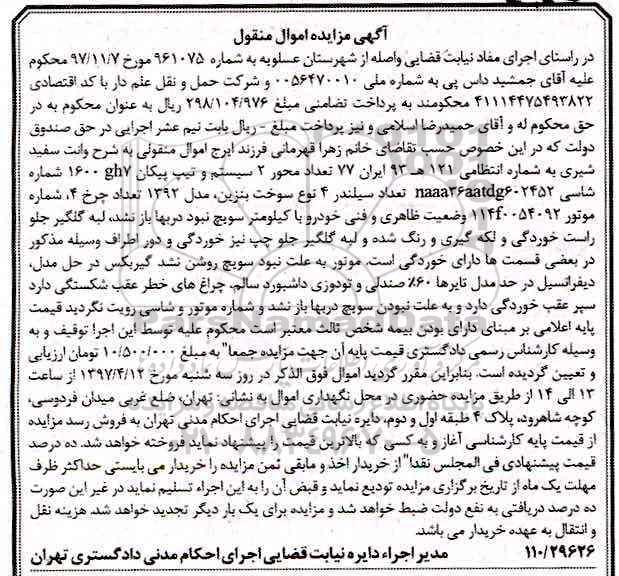 آگهی مزایده اموال منقول
در راستای اجرای مفاد نیابت قضایی واصله از شهرستان عسلویه به شماره ۹۶۱۰۷۵ مورخ ۹۷/۱۱/۷ محکوم
علیه آقای جمشید داس پی به شماره ملی ۰۰۵۶۴۷۰۰۱۰ و شرکت حمل و نقل علم دار با کد اقتصادی
۴۱۱۱۴۴۷۵۴۹۳۸۲۲ محکومند به پرداخت تضامنی مبلغ ۲۹۸/۱۰۴/۹۷۶ ریال به عنوان محکوم به در
حق محکوم له و آقای حمیدرضا اسلامی و نیز پرداخت مبلغ - ریال بابت نیم عشر اجرایی در حق صندوق
دولت که در این خصوص حسب تقاضای خانم زهرا قهرمانی فرزند ایرج اموال منقولی به شرح وانت سفید
شیری به شماره انتظامی ۱۲۱ هـ ۹۳ ایران ۷۷ تعداد محور ۲ سیستم و تیپ پیکان gh۷ ۱۶۰۰ شماره
شاسی naaa۳۶aatdg۶۰۲۴۵۲ تعداد سیلندر ۴ نوع سوخت بنزین، مدل ۱۳۹۲ تعداد چرخ ۴، شماره
موتور ۱۱۴f۰۰۵۴۰۹۲ وضعیت ظاهری و فنی خودرو با کیلومتر سویچ نبود دربها باز نشد، لبه گلگیر جلو
راست خوردگی و لکه گیری و رنگ شده و لبه گلگیر جلو چپ نیز خوردگی و دور اطراف وسیله مذکور
در بعضی قسمت ها دارای خوردگی است. موتور به علت نبود سویچ روشن نشد گیربکس در حل مدل،
دیفرانسیل در حد مدل تایرها ۶۰٪ صندلی و تودوزی داشبورد سالم، چراغ های خطر عقب شکستگی دارد
سپر عقب خوردگی دارد و به علت نبودن سویچ دربها باز نشد و شماره موتور و شاسی رویت نگردید قیمت
پایه اعلامی بر مبنای دارای بودن بیمه شخص ثالث معتبر است محکوم علیه توسط این اجرا توقیف و به
وسیله کارشناس رسمی دادگستری قیمت پایه آن جهت مزایده جمعا" به مبلغ ۱۰/۵۰۰/۰۰۰ تومان ارزیابی
و تعیین گردیده است. بنابراین مقرر گردید اموال فوق الذکر در روز سه شنبه مورخ ۱۳۹۷/۴/۱۲ از ساعت
۱۳ الی ۱۴ از طریق مزایده حضوری در محل نگهداری اموال به نشانی: تهران، ضلع غربی میدان فردوسی،
کوچه شاهرود، پلاک ۴ طبقه اول و دوم، دایره نیابت قضایی اجرای احکام مدنی تهران به فروش رسد مزایده
از قیمت پایه کارشناسی آغاز و به کسی که بالاترین قیمت را پیشنهاد نماید فروخته خواهد شد. ده درصد
قیمت پیشنهادی فی المجلس نقدا" از خریدار اخذ و مابقی ثمن مزایده را خریدار می بایستی حداکثر ظرف
مهلت یک ماه از تاریخ برگزاری مزایده تودیع نماید و قبض آن را به این اجراء تسلیم نماید در غیر این صورت
ده درصد دریافتی به نفع دولت ضبط خواهد شد و مزایده برای یک بار دیگر تجدید خواهد شد. هزینه نقل
و انتقال به عهده خریدار می باشد.
۱۱۰/۲۹۶۲۶ مدیر اجراء دایره نیابت قضایی اجرای احکام مدنی دادگستری تهران